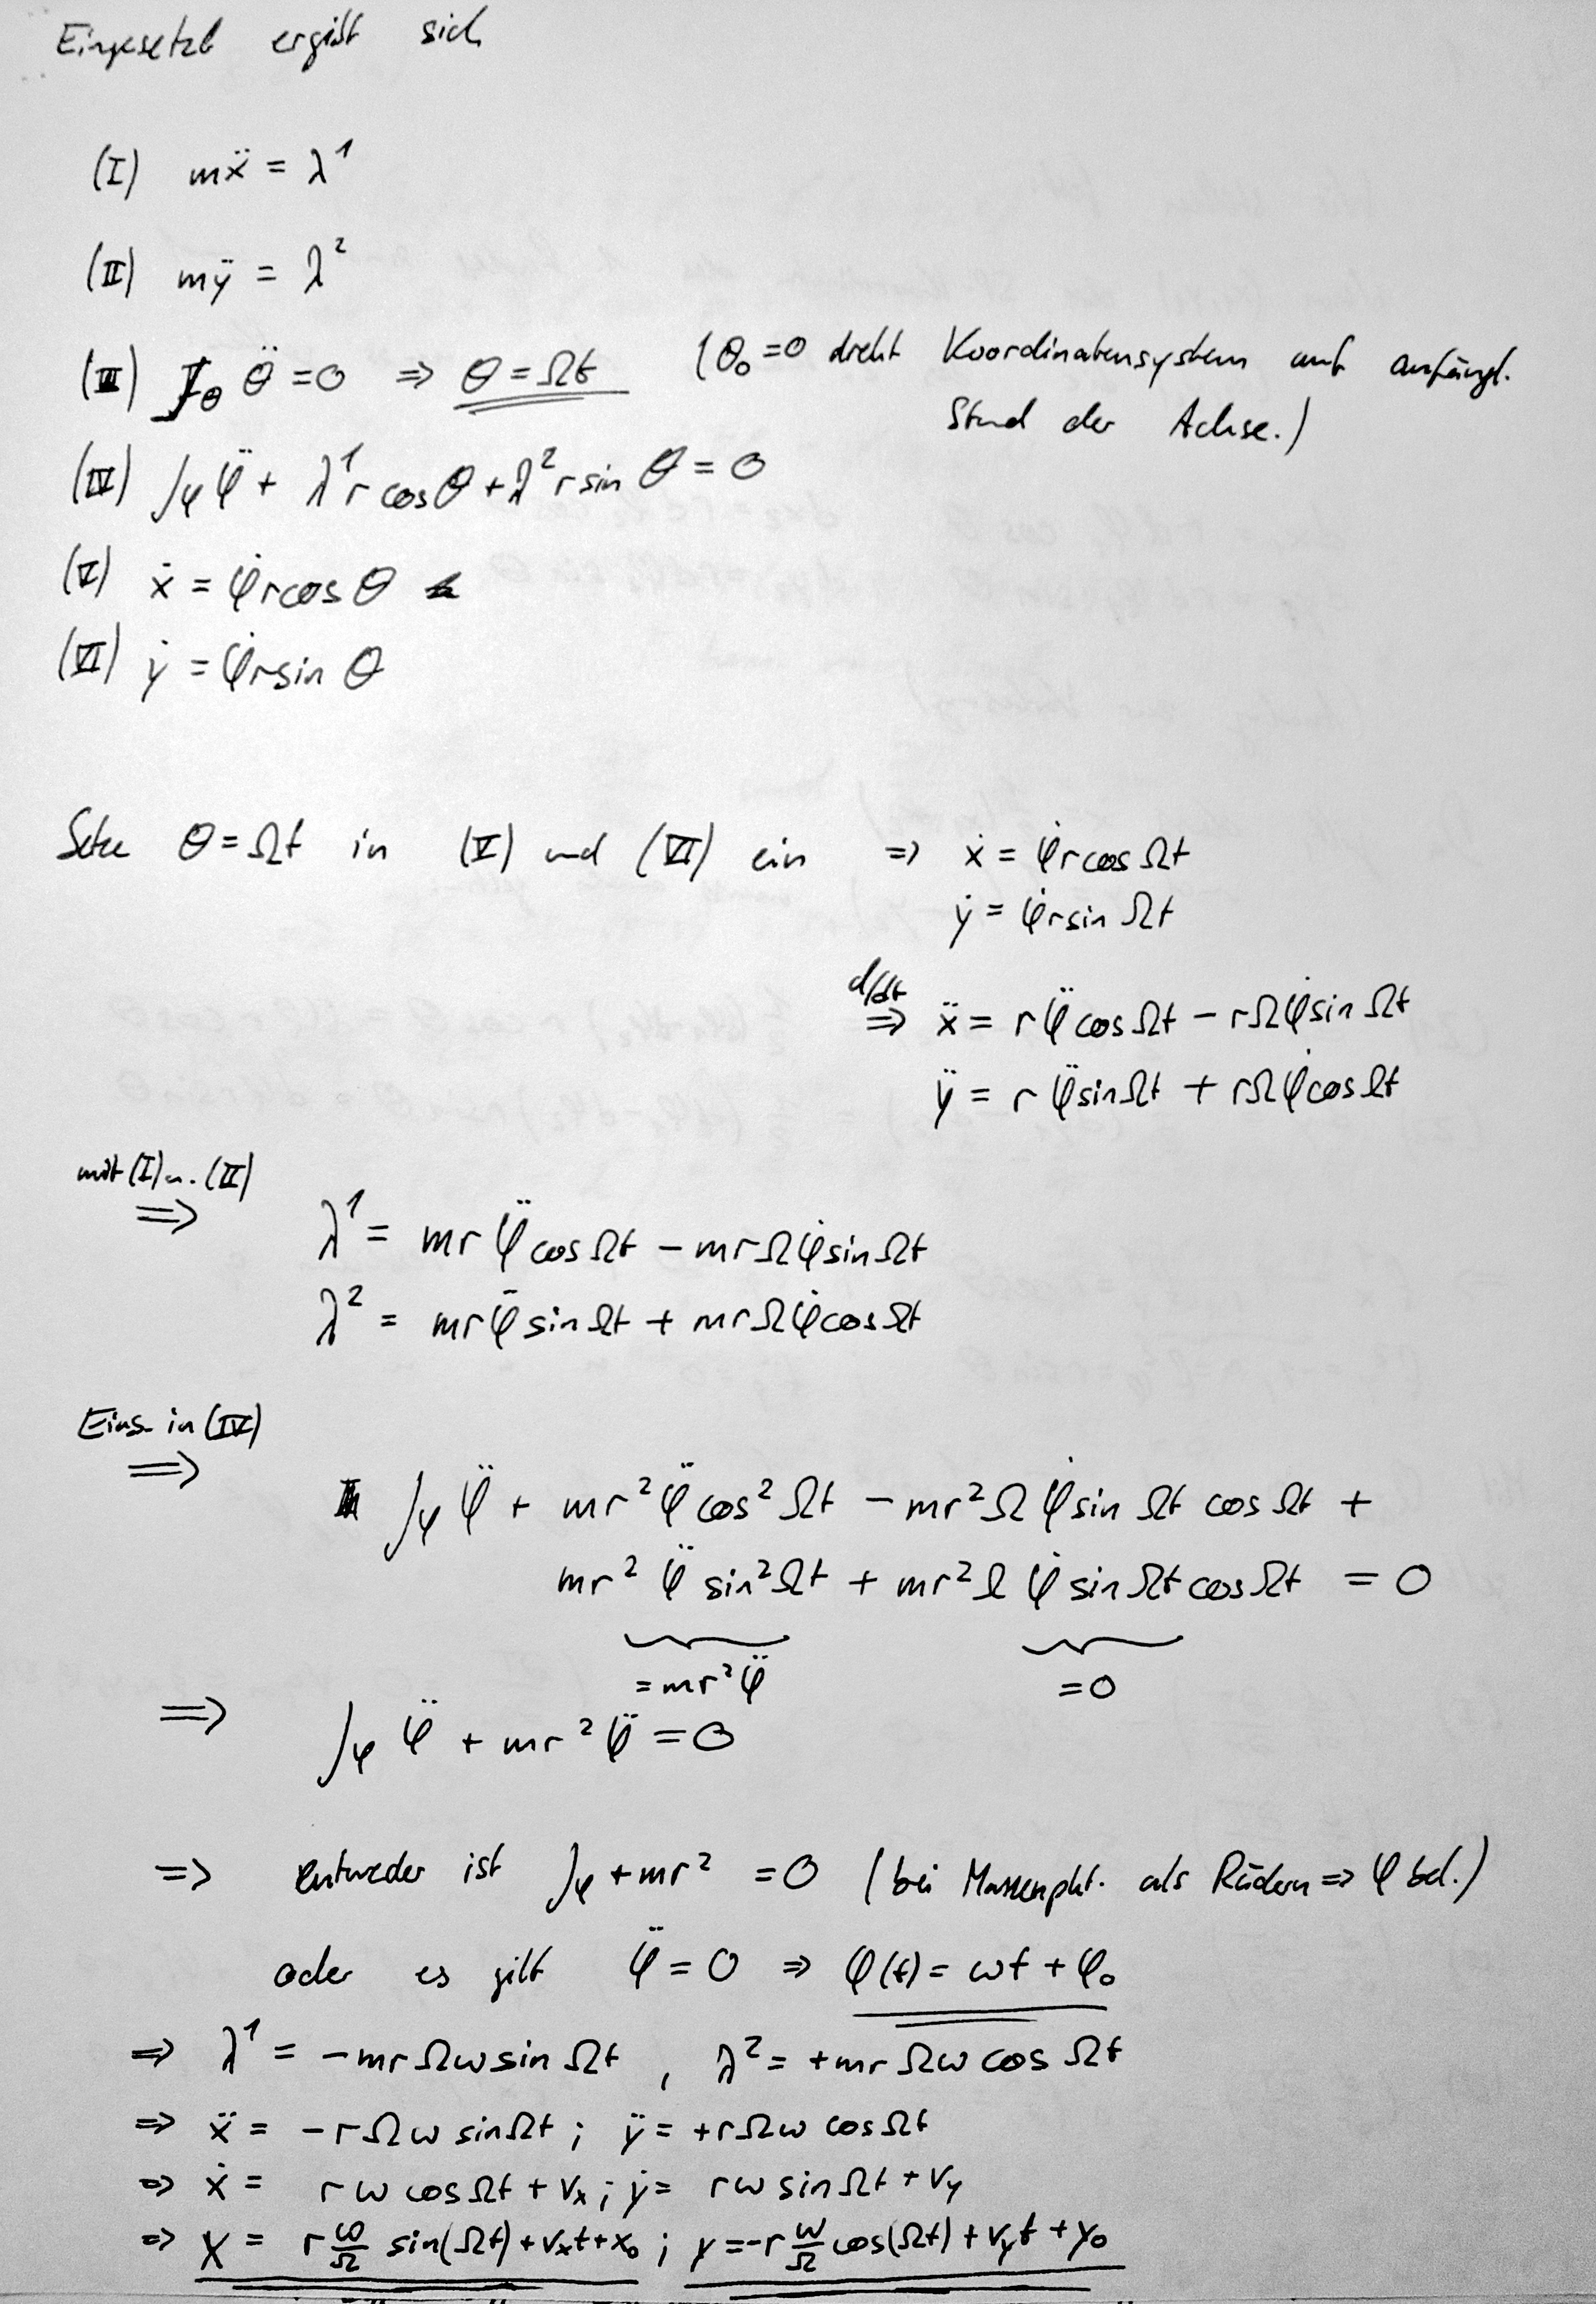 Eingesetzt ergibt sich
(I) mẍ = λ¹
(II) mÿ = λ²
(III) J_θ θ̈ = 0 ⇒ θ = Ωt (θ₀ = 0 dreht Koordinatensystem auf anfängl.
Stand der Achse.)
(IV) J_φ φ̈ + λ¹ r cos θ + λ² r sin θ = 0
(V) ẋ = φ̇ r cos θ
(VI) ẏ = φ̇ r sin θ
Setze θ = Ωt in (V) und (VI) ein ⇒ ẋ = φ̇ r cos Ωt
ẏ = φ̇ r sin Ωt
d/dt ⇒ ẍ = r φ̈ cos Ωt − rΩφ̇ sin Ωt
ÿ = r φ̈ sin Ωt + rΩφ̇ cos Ωt
mit (I) u. (II)
⇒ λ¹ = mr φ̈ cos Ωt − mrΩφ̇ sin Ωt
λ² = mr φ̈ sin Ωt + mrΩφ̇ cos Ωt
Eins. in (IV)
⇒ J_φ φ̈ + mr² φ̈ cos² Ωt − mr² Ω φ̇ sin Ωt cos Ωt +
mr² φ̈ sin² Ωt + mr² Ω φ̇ sin Ωt cos Ωt = 0
= mr² φ̈ = 0
⇒ J_φ φ̈ + mr² φ̈ = 0
⇒ entweder ist J_φ + mr² = 0 (bei Massenpkt. als Rädern ⇒ φ bel.)
oder es gilt φ̈ = 0 ⇒ φ(t) = ωt + φ₀
⇒ λ¹ = −mrΩω sin Ωt , λ² = +mrΩω cos Ωt
⇒ ẍ = −rΩω sin Ωt ; ÿ = +rΩω cos Ωt
⇒ ẋ = rω cos Ωt + v_x ; ẏ = rω sin Ωt + v_y
⇒ x = r ω/Ω sin(Ωt) + v_x t + x₀ ; y = −r ω/Ω cos(Ωt) + v_y t + y₀